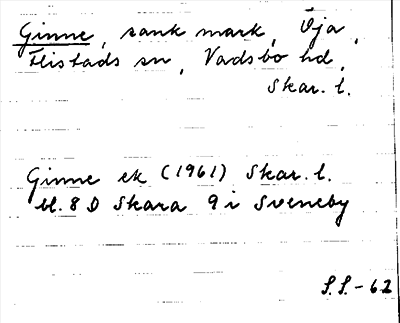 Ginne, sank mark, Öja,
Flistads sn, Vadsbo hd,
Skar. l.
Ginne ek (1961) Skar. l.
bl. 8 D Skara 9 i Sveneby
S.S. - 62